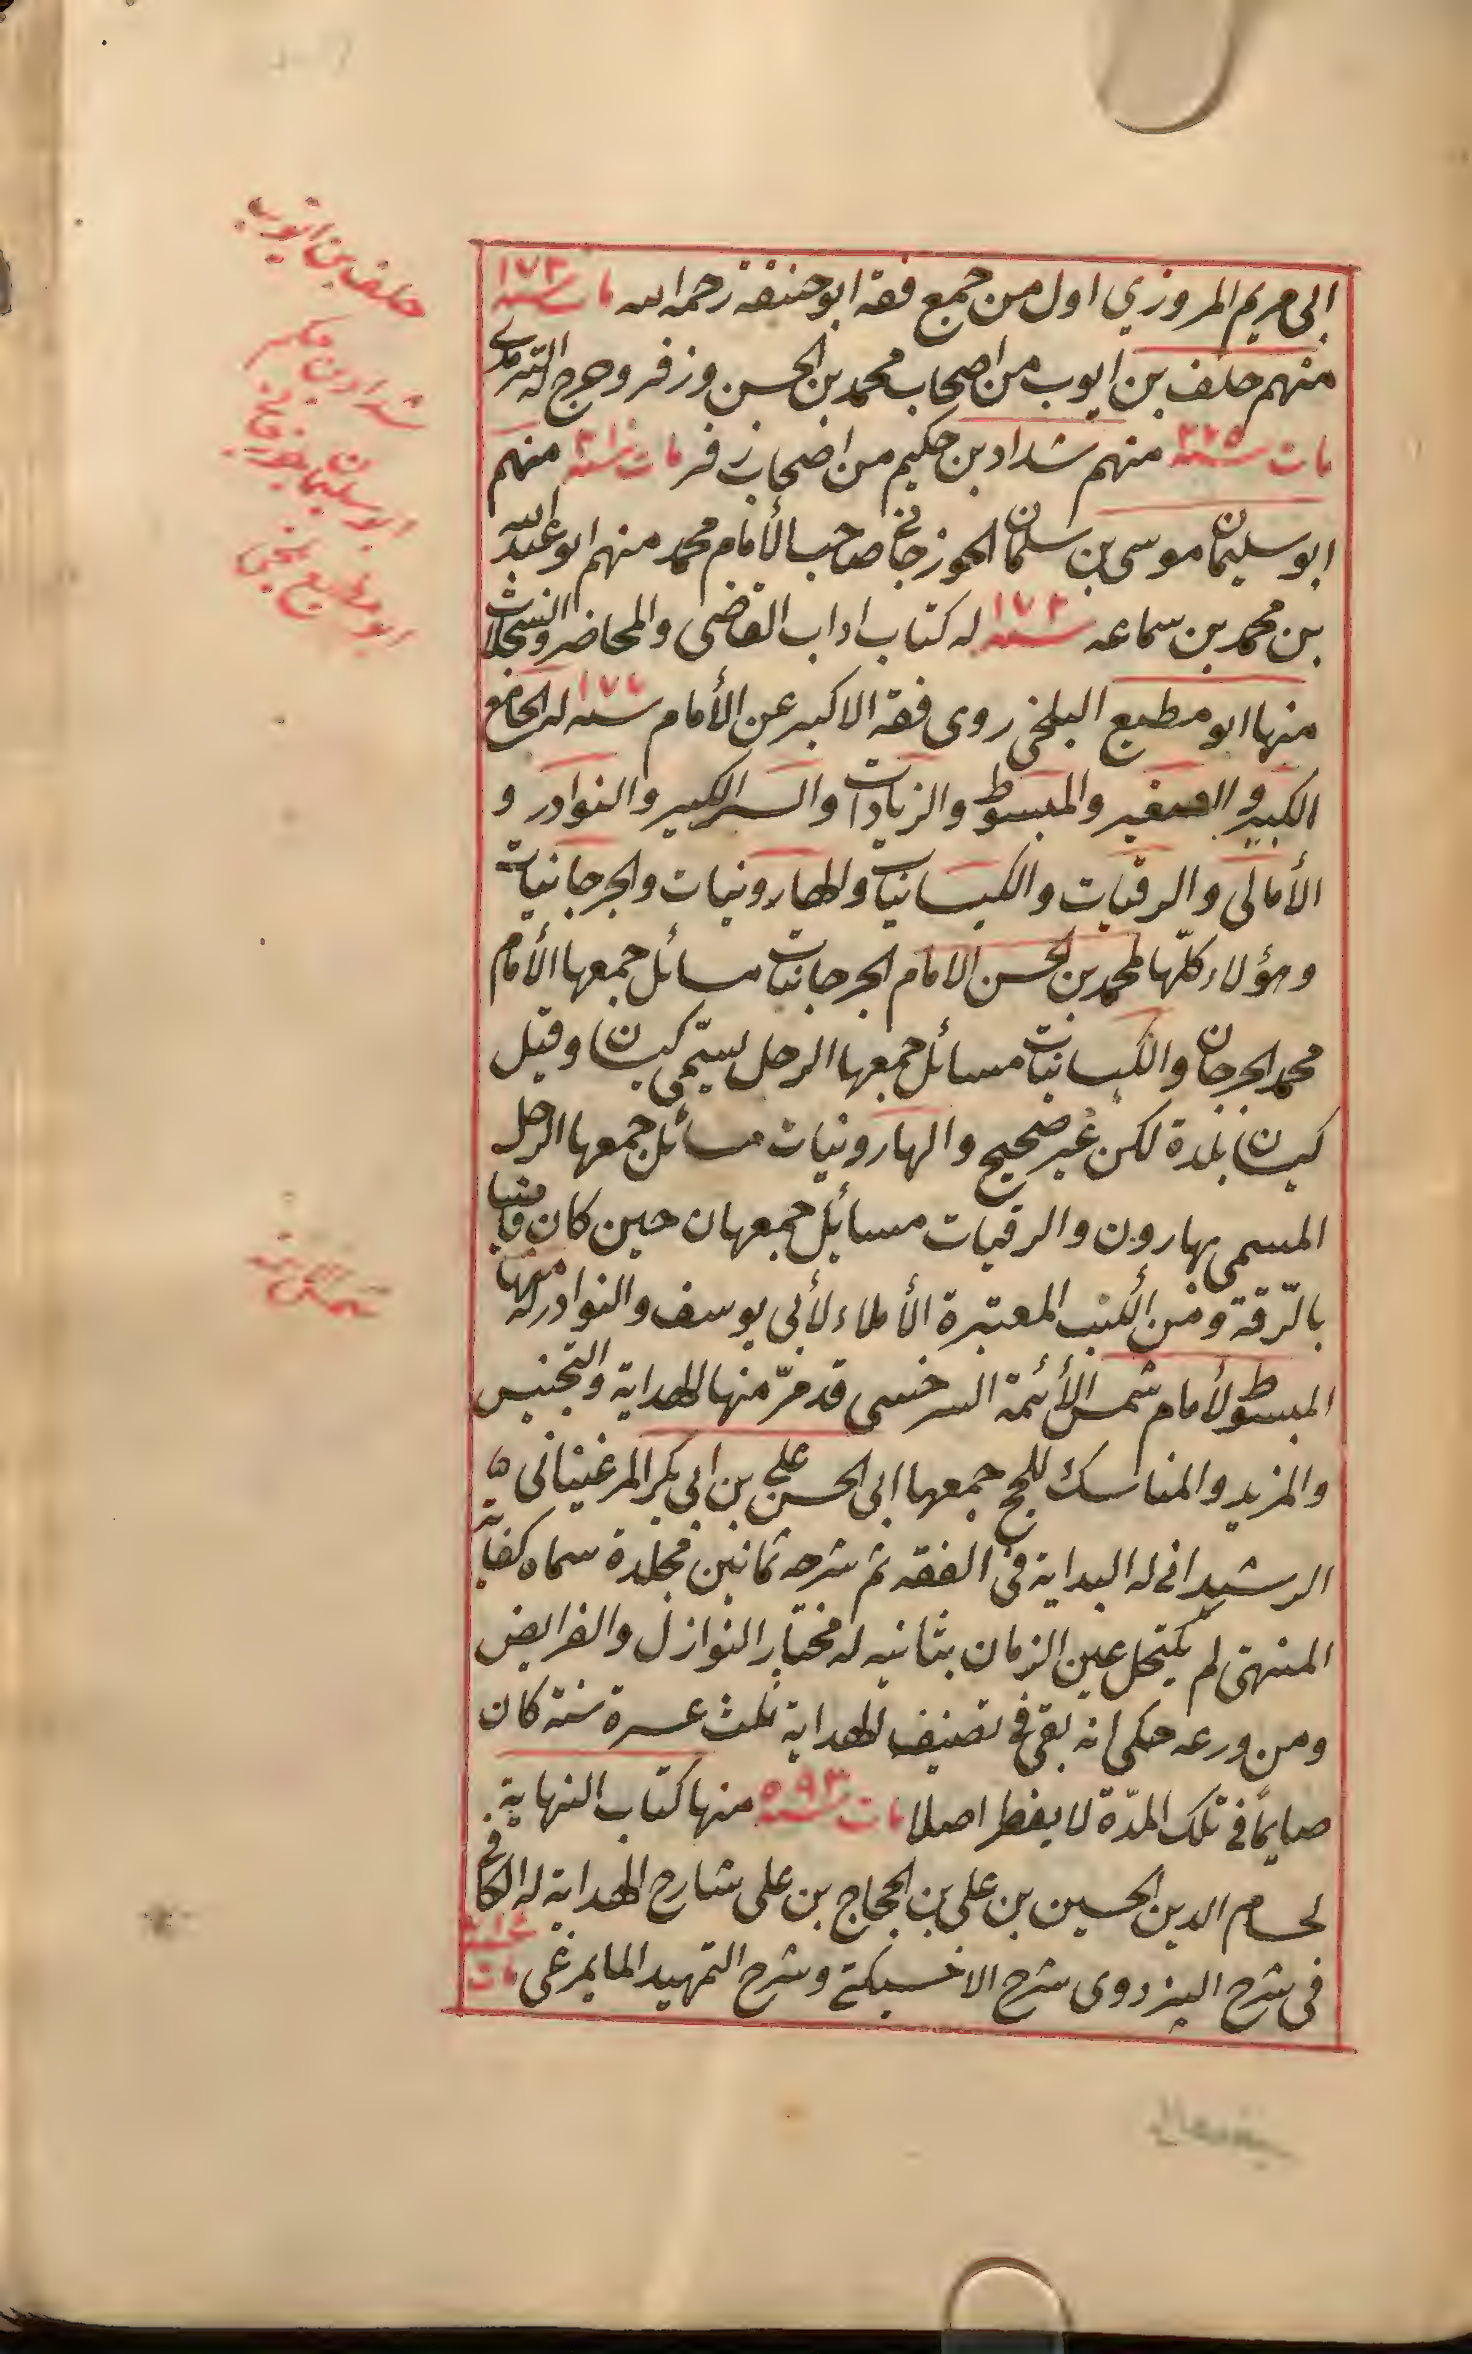 ابى مريم المروزي اول من جمع فقه ابو حنيفة رحمه الله مات سنة ١٧٣
منهم خلف بن ايوب من اصحاب محمد بن الحسن وزفر وخرج له الترمذي
مات سنة منهم شداد بن حكيم من اصحاب زفر مات سنة منهم
ابو سليمان موسى بن سلمان الجوزجانى صاحب الأمام محمد منهم ابو عبد الله
بن محمد بن سماعه سنة له كتاب اداب القاضى والمحاضر والسجلات
منها ابو مطيع البلخى روى فقه الاكبر عن الأمام سنه له الجامع
الكبير و الصغير والمبسوط والزيادات والسير الكبير والنوادر و
الأمالى والرقيات والكيسانيات والهارونيات والجرجانيات
وهؤلاء كلّها لمحمد بن الحسن الامام الجرجانيات مسائل جمعها الأمام
محمد الجرجان والكيسانيات مسائل جمعها الرجل يسمّى كيسان وقيل
كيسان بلدة لكن غير صحيح والهارونيات مسائل جمعها الرجل
المسمى بهارون والرقيات مسايل جمعهان حين كان قاضيا
بالرّقة ومن الكتب المعتبرة الأملاء لأبى يوسف والنوادر له منها
المبسوط لأمام شمس الأئمة السرخسى قد مرّ منها الهداية والتجنيس
والمزيد والمناسك للحج جمعها ابى الحسن على بن ابى بكر المرغينانى
الرشيدانى له البداية فى الفقه ثم شرحه ثمانين مجلدة سماه كفاية
المنتهى لم يكتحل عين الزمان بثانيه له مختار النوازل والفرايض
ومن ورعه حكى انه بقى فى تصنيف الهداية ثلث عسرة سنة كان
صايمًا فى تلك المدّة لا يفطر اصلا مات سنة ٥٩٣ منها كتاب النهاية
لحسام الدين الحسين بن على بن الحجاج بن على شارح الهداية له الكافى
فى شرح البزدوى شرح الاخسيكتى وشرح التمهيد المايمرغى مات
خلف بن ايوب
شداد بن حكيم
ابو سليمان جوزجانى
ابو مطيع بلخى